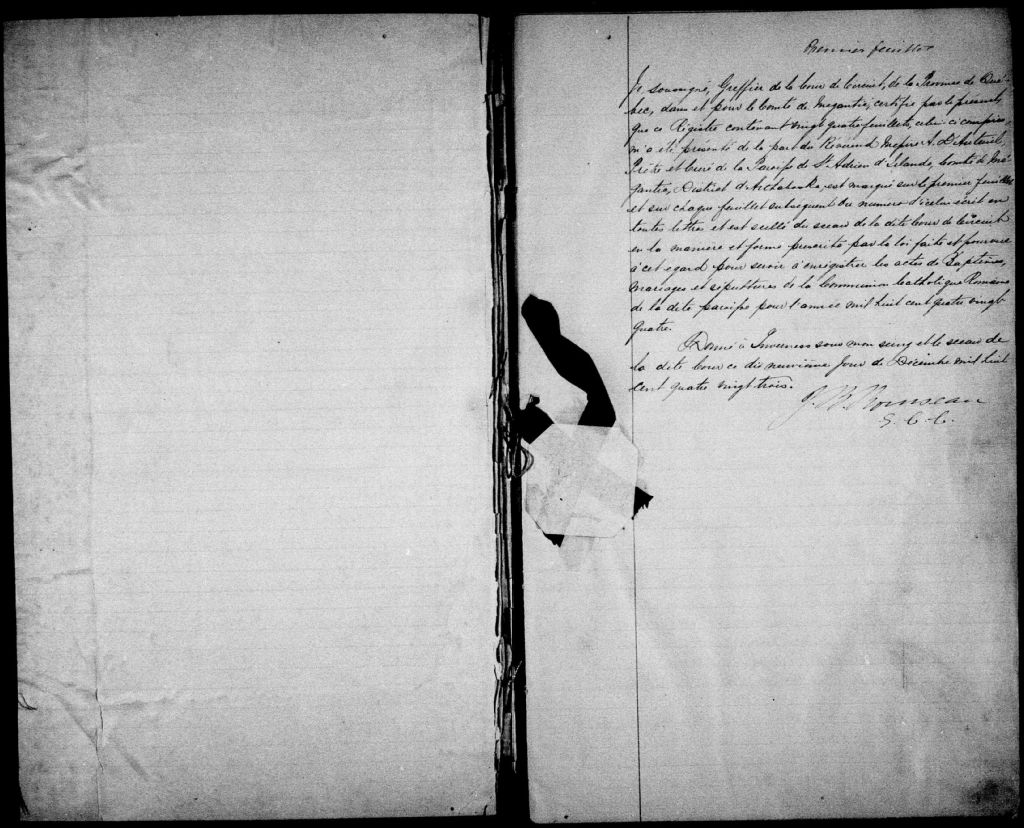 Premier feuillet
Je soussigné, Greffier de la Cour de Circuit, de la Province de Qué-
bec, dans et pour le Comté de Megantic, certifie par le présent,
que ce Régistre contenant vingt quatre feuillets, celui-ci compris,
m'a été présenté de la part du Révérend Messire A. D'Auteuil,
Prêtre et Curé de la Paroisse de St. Adrien d'Irlande, Comté de Mé-
gantic, District d'Arthabaska, est marqué sur le premier feuillet
et sur chaque feuillet subsequent du numéro d'icelui écrit en
toutes lettres et est scellé du sceau de la dite Cour de Circuit
en la manière et forme prescrite par la loi faite et pourvue
à cet egard pour servir à enrégistrer les actes de Baptêmes,
Mariages et sépultures de la Communion Catholique Romaine
de la dite paroisse pour l'année mil huit cent quatre vingt
quatre.
Donné à Inverness sous mon seing et le sceau de
la dite Cour ce dix neuvième jour de Décembre mil huit
cent quatre vingt trois.
Rousseau
G. C. C.